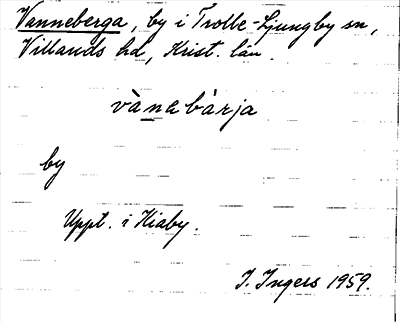 Vanneberga, by i Trolle-Ljungby sn,
Villands hd, Krist. län.
vànebàrja
by
Uppt. i Kiaby.
I. Ingers 1959.